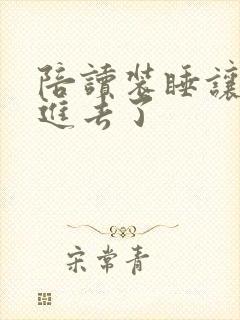 陪讀裝睡讓
進去了
宋常青